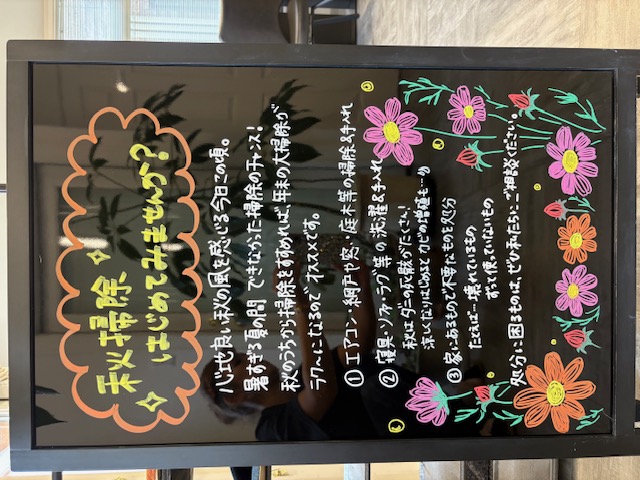 秋掃除
はじめてみませんか?
心地良い秋の風を感じる今日この頃。
暑すぎる夏の間 できなかった掃除のチャンス!
秋のうちから掃除をすすめれば、年末の大掃除が
ラク〜になるのでオススメです。
① エアコン・網戸や窓・庭木等の掃除&手入れ
② 寝具・ソファ・ラグ等の洗濯&手入れ
秋はダニの死骸がたくさん!
涼しくなりはじめるとカビの増殖も…
③ 家にあるもので不要なものを処分
たとえば…壊れているもの
ずっと使っていないもの
処分に困るものは、ぜひ私たちにご相談ください。